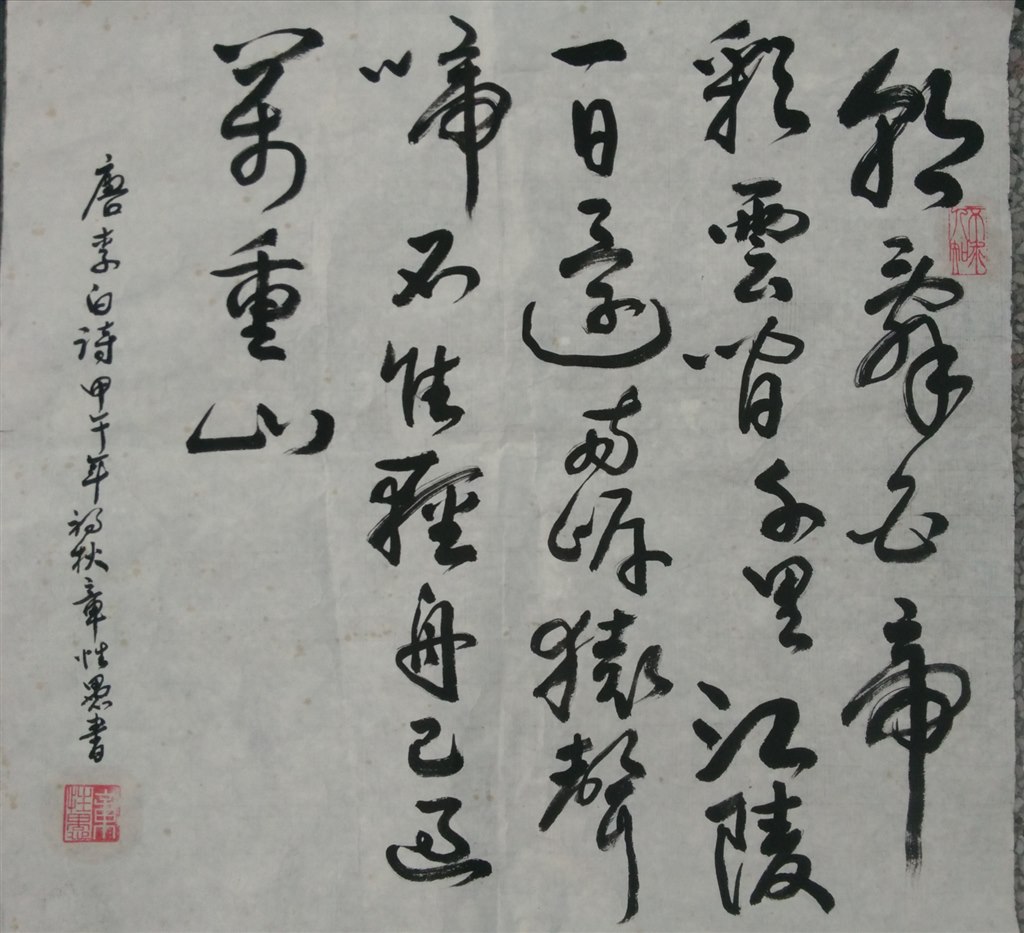 朝辭白帝
彩雲間千里江陵
一日還兩岸猿聲
啼不住輕舟已過
萬重山
唐李白詩甲午年初秋章性愚書
章性愚